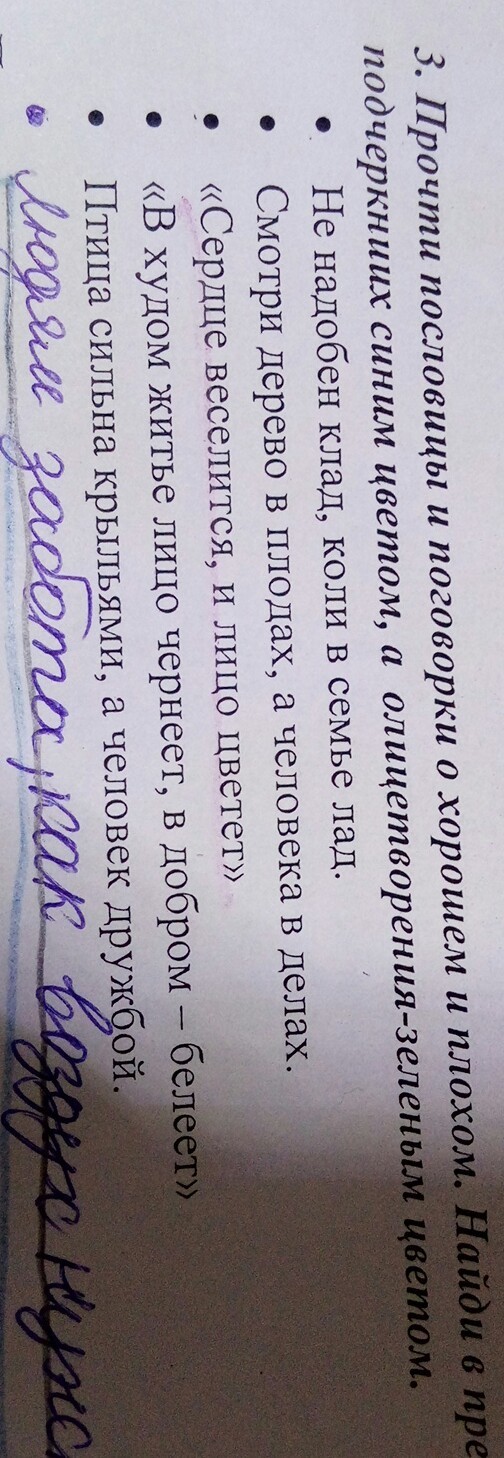 3. Прочти пословицы и поговорки о хорошем и плохом. Найди в
подчеркниих синим цветом, а олицетворения-зеленым цветом.
• Не надобен клад, коли в семье лад.
• Смотри дерево в плодах, а человека в делах.
• «Сердце веселится, и лицо цветет»
• «В худом житье лицо чернеет, в добром – белеет»
• Птица сильна крыльями, а человек дружбой.
• людям забота, как воздух